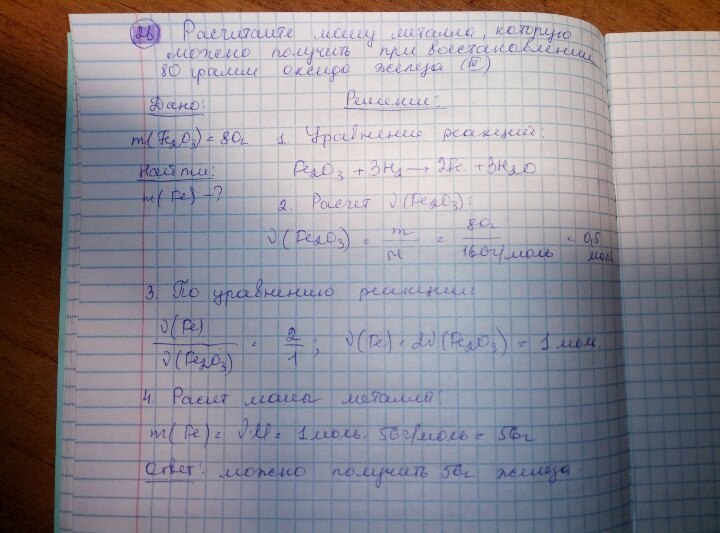 26 Расчитайте массу металла, которую
можно получить при восстановлении
80 грамм оксида железа (III)
Дано:
Решение:
m(Fe₂O₃) = 80г
1. Уравнение реакций:
Найти:
Fe₂O₃ + 3H₂ → 2Fe + 3H₂O
m(Fe) - ?
2. Расчет ν(Fe₂O₃):
ν(Fe₂O₃) = m/M = 80г/160г/моль = 0,5 моль
3. По уравнению реакции:
ν(Fe)/ν(Fe₂O₃) = 2/1; ν(Fe) = 2ν(Fe₂O₃) = 1 моль.
4. Расчет массы металла:
m(Fe) = ν·M = 1 моль · 56г/моль = 56г
Ответ: можно получить 56г железа.